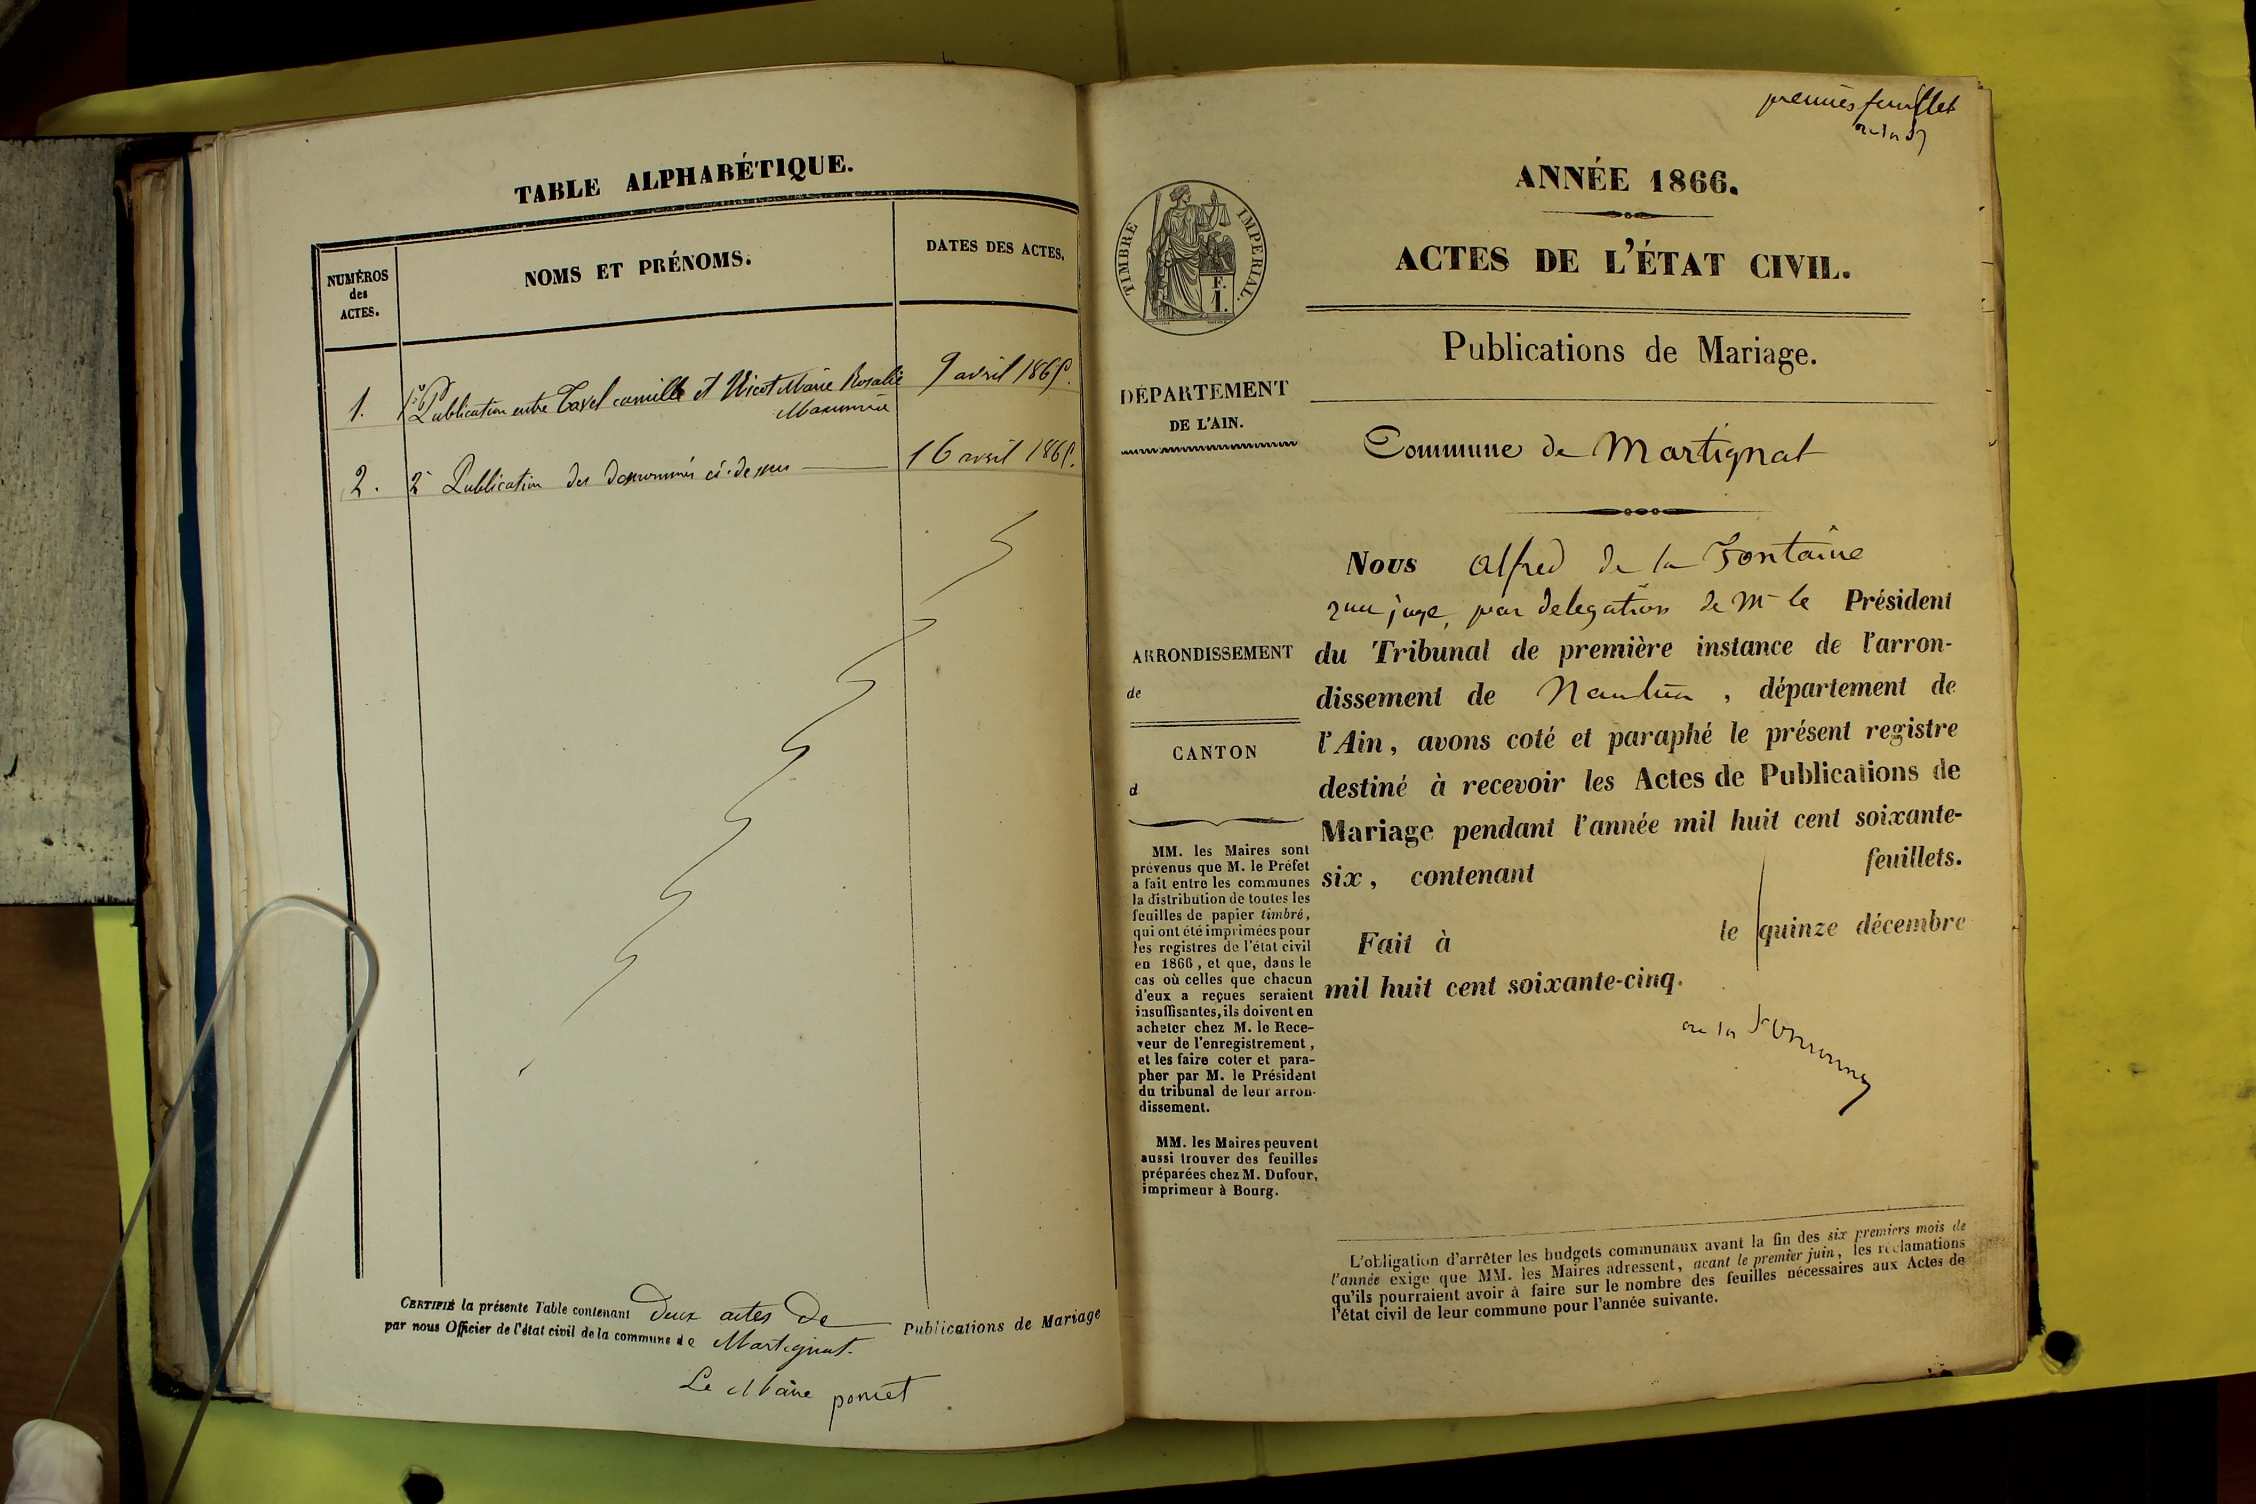 TABLE ALPHABÉTIQUE.
NUMÉROS
des
ACTES.
NOMS ET PRÉNOMS.
DATES DES ACTES.
1. Publication entre Tavel camille et Nicot Marie Rosalie 9 avril 1865.
2. 2e Publication des dénommés ci-dessus 16 avril 1865.
CERTIFIÉ la présente Table contenant Deux actes De Publications de Mariage
par nous Officier de l'état civil de la commune de Martignat.
Le Maire poncet
premier feuillet
ANNÉE 1866.
ACTES DE L'ÉTAT CIVIL.
Publications de Mariage.
TIMBRE IMPERIAL.
F.
1.
DÉPARTEMENT
DE L'AIN.
Commune de Martignat
Nous Alfred de la Fontaine
juge, par délégation de Mr le Président
du Tribunal de première instance de l'arron-
dissement de Nantua, département de
l'Ain, avons coté et paraphé le présent registre
destiné à recevoir les Actes de Publications de
Mariage pendant l'année mil huit cent soixante-
six, contenant feuillets.
Fait à le quinze décembre
mil huit cent soixante-cinq.
ARRONDISSEMENT
de
CANTON
d
MM. les Maires sont
prévenus que M. le Préfet
a fait entre les communes
la distribution de toutes les
feuilles de papier timbré,
qui ont été imprimées pour
les registres de l'état civil
en 1866, et que, dans le
cas où celles que chacun
d'eux a reçues seraient
insuffisantes, ils doivent en
acheter chez M. le Rece-
veur de l'enregistrement,
et les faire coter et para-
pher par M. le Président
du tribunal de leur arron-
dissement.
MM. les Maires peuvent
aussi trouver des feuilles
préparées chez M. Dufour,
imprimeur à Bourg.
L'obligation d'arrêter les budgets communaux avant la fin des six premiers mois de
l'année exige que MM. les Maires adressent, avant le premier juin, les réclamations
qu'ils pourraient avoir à faire sur le nombre des feuilles nécessaires aux Actes de
l'état civil de leur commune pour l'année suivante.